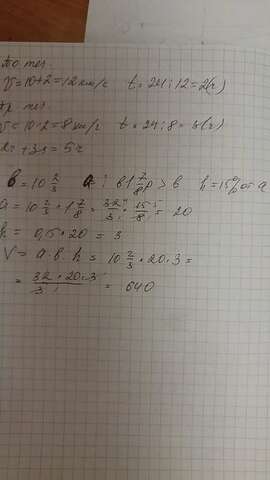 По теч.
V = 10+2 = 12 км/ч t = 24 : 12 = 2(ч)
Пр теч.
V = 10-2 = 8 км/ч t = 24 : 8 = 3(ч)
2ч + 3ч = 5ч
b = 10 2/3 a в 1 7/8 р > b h = 15% от a
a = 10 2/3 * 1 7/8 = 32/3 * 15/8 = 20
h = 0,15 * 20 = 3
V = a · b · h = 10 2/3 * 20 · 3 =
= 32 * 20 · 3 / 3 = 640